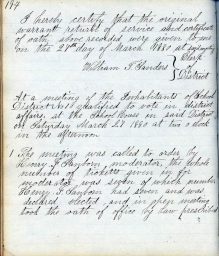 194
I hereby certify that the original
warrant return of service and certificate
of oath, above recorded were given to me
on the 27th day of March 1880 at
Clerk
William F Sanders } of
District
At a meeting of the Inhabitants of School
District No 1 qualified to vote in district
affairs, at the School House in said District
on Saturday March 27 1880 at two o clock
in the afternoon
1 The meeting was called to order by
Henry Sanborn, moderator, the whole
number of tickets given in for
moderator was seven of which number
Henry Sanborn had seven and was
declared elected, and in open meeting
took the oath of office by law prescribed